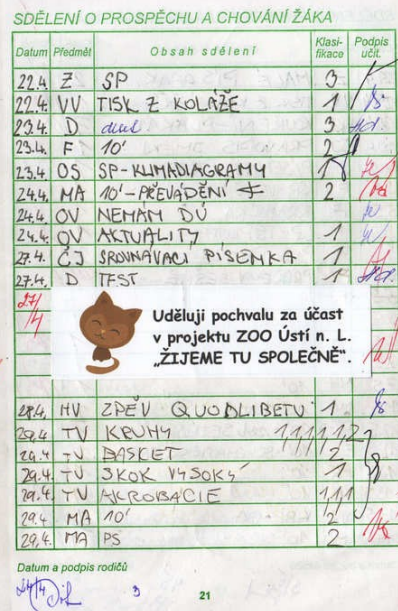 SDĚLENÍ O PROSPĚCHU A CHOVÁNÍ ŽÁKA
Datum Předmět Obsah sdělení Klasifikace Podpis učit.
22.4. Z SP 3
22.4. VV TISK Z KOLÁŽE 1
23.4. D 3
23.4. F 10' 2
23.4. OS SP-KLIMADIAGRAMY 1
24.4. MA 10'-PŘEVÁDĚNÍ 2
24.4. OV NEMÁM DÚ
24.4. OV AKTUALITY 1
27.4. ČJ SROVNÁVACÍ PÍSENKA 1
27.4. D TEST 1
27/4
Uděluji pochvalu za účast
v projektu ZOO Ústí n. L.
„ŽIJEME TU SPOLEČNĚ".
28.4. HV ZPĚV QUODLIBETU 1
29.4. TV KRUHY 1,1,1,1,1,2
29.4. TV BASKET 2
29.4. TV SKOK VYSOKÝ 1
29.4. TV AKROBACIE 1,1,1
29.4. MA 10' 2
29.4. MA PS 2
Datum a podpis rodičů
21